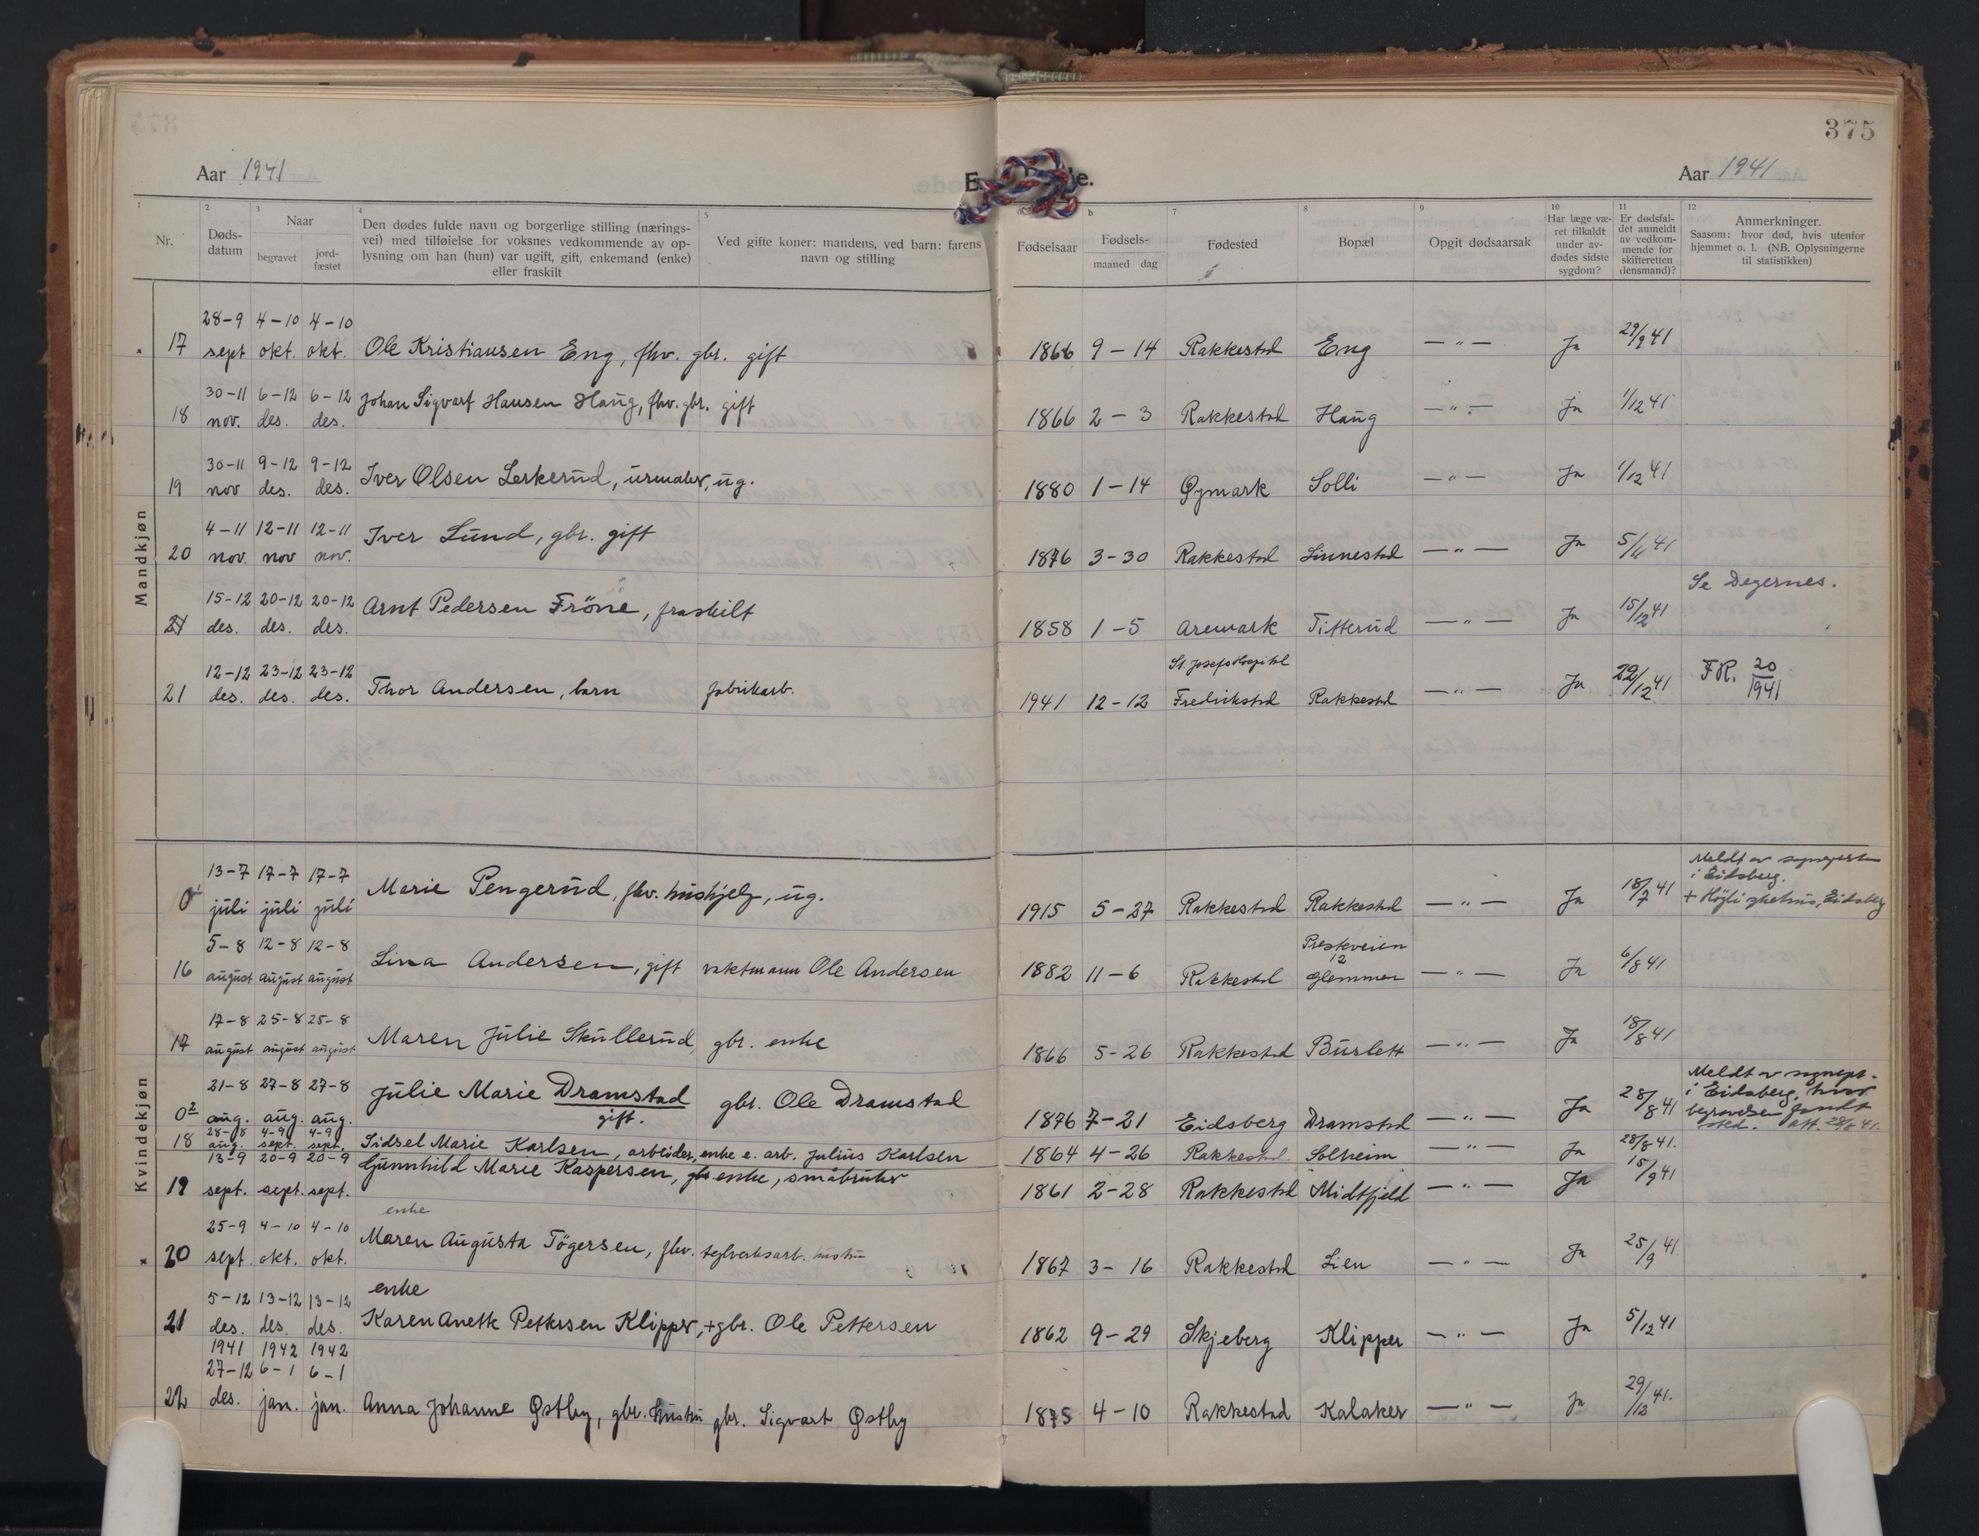 375
Aar 1941
Aar 1941
1 2 3 4 5 b 7 8 9 10 11 12
Nr.
Døds-
datum
Naar
begravet
jord-
fæstet
Den dødes fulde navn og borgerlige stilling (nærings-
vei) med tilføielse for voksnes vedkommende av op-
lysning om han (hun) var ugift, gift, enkemand (enke)
eller fraskilt
Ved gifte koner: mandens, ved barn: farens
navn og stilling
Fødselsaar
Fødsels-
maaned dag
Fødested
Bopæl
Opgit dødsaarsak
Har læge væ-
ret tilkaldt
under av-
dødes sidste
sygdom?
Er dødsfal-
det anmeldt
av vedkom-
mende for
skifteretten
(lensmand)?
Anmerkninger.
Saasom: hvor død, hvis utenfor
hjemmet o. l. (NB. Oplysningerne
til statistikken)
Mandkjøn
28-9 4-10 4-10
17 sept okt. okt. Ole Kristiansen Eng, fhv. gbr. gift 1866 9-14 Rakkestad Eng — " — Ja 29/9 41
30-11 6-12 6-12
18 nov. des. des. Johan Sigvart Hansen Haug, fhv. gbr. gift 1866 2-3 Rakkestad Haug — " — Ja 1/12 41
30-11 9-12 9-12
19 nov des. des. Iver Olsen Lerkerud, urmaker, ug. 1880 1-14 Øymark Solli — " — Ja 1/12 41
4-11 12-11 12-11
20 nov. nov nov. Iver Lund, gbr. gift 1876 3-30 Rakkestad Linnestad — " — Ja 5/11 41
Se Degernes.
15-12 20-12 20-12
21 des. des. des. Arnt Pedersen Fröne, fraskilt 1858 1-5 Aremark Titterud — " — Ja 15/12 41
12-12 23-12 23-12 St. Josefs Hospital
21 des. des. des. Thor Andersen, barn fabrikarb. 1941 12-12 Fredrikstad Rakkestad — " — Ja 22/12 41 F.R. 20/1941
Kvindekjøn
13-7 17-7 17-7 Meldt av sogneprsten
i Eidsberg.
0¹ juli juli juli Marie Pengerud, fhv. hushjelp, ug. 1915 5-27 Rakkestad Rakkestad — " — Ja 18/7 41 + Høgli Eidsberg
5-8 12-8 12-8 Prestveien
12
16 august august august Lina Andersen, gift vaktmann Ole Andersen 1882 11-6 Rakkestad Glemmen — " — Ja 6/8 41
17-8 25-8 25-8
17 august august august Maren Julie Skullerud, gbr. enke 1866 5-26 Rakkestad Buslett — " — Ja 18/8 41
21-8 27-8 27-8 Meldt av sognept.
i Eidsberg, hvor
0² aug. aug. aug. Julie Marie Dramstad gift. gbr. Ole Dramstad 1876 7-21 Eidsberg Dramstad — " — Ja 28/8 41 begravelsen fandt
sted. att. 28/8 41.
28-8 4-9 4-9
18 aug. sept. sept. Sidsel Marie Karlsen, arbeider, enke e. arb. Julius Karlsen 1864 4-26 Rakkestad Solheim — " — Ja 28/8 41.
13-9 20-9 20-9
19 sept. sept. sept. Gunnhild Marie Kaspersen, enke, småbruker 1861 2-28 Rakkestad Midtfjeld — " — Ja 15/9 41
enke
25-9 4-10 4-10
20 sept. okt. okt. Maren Augusta Tögersen, fhv. teglverksarb. hustru 1867 3-16 Rakkestad Lien — " — Ja 25/9 41.
enke
5-12 13-12 13-12
21 des. des. des. Karen Anette Pettersen Klipper, + gbr. Ole Pettersen 1862 9-29 Skjeberg Klipper — " — Ja 5/12 41
1941 1942 1942
27-12 6-1 6-1
22 des. jan. jan. Anna Johanne Østby, gbr. hustru gbr. Sigvart Østby 1875 4-10 Rakkestad Kalaker — " — Ja 29/12 41.